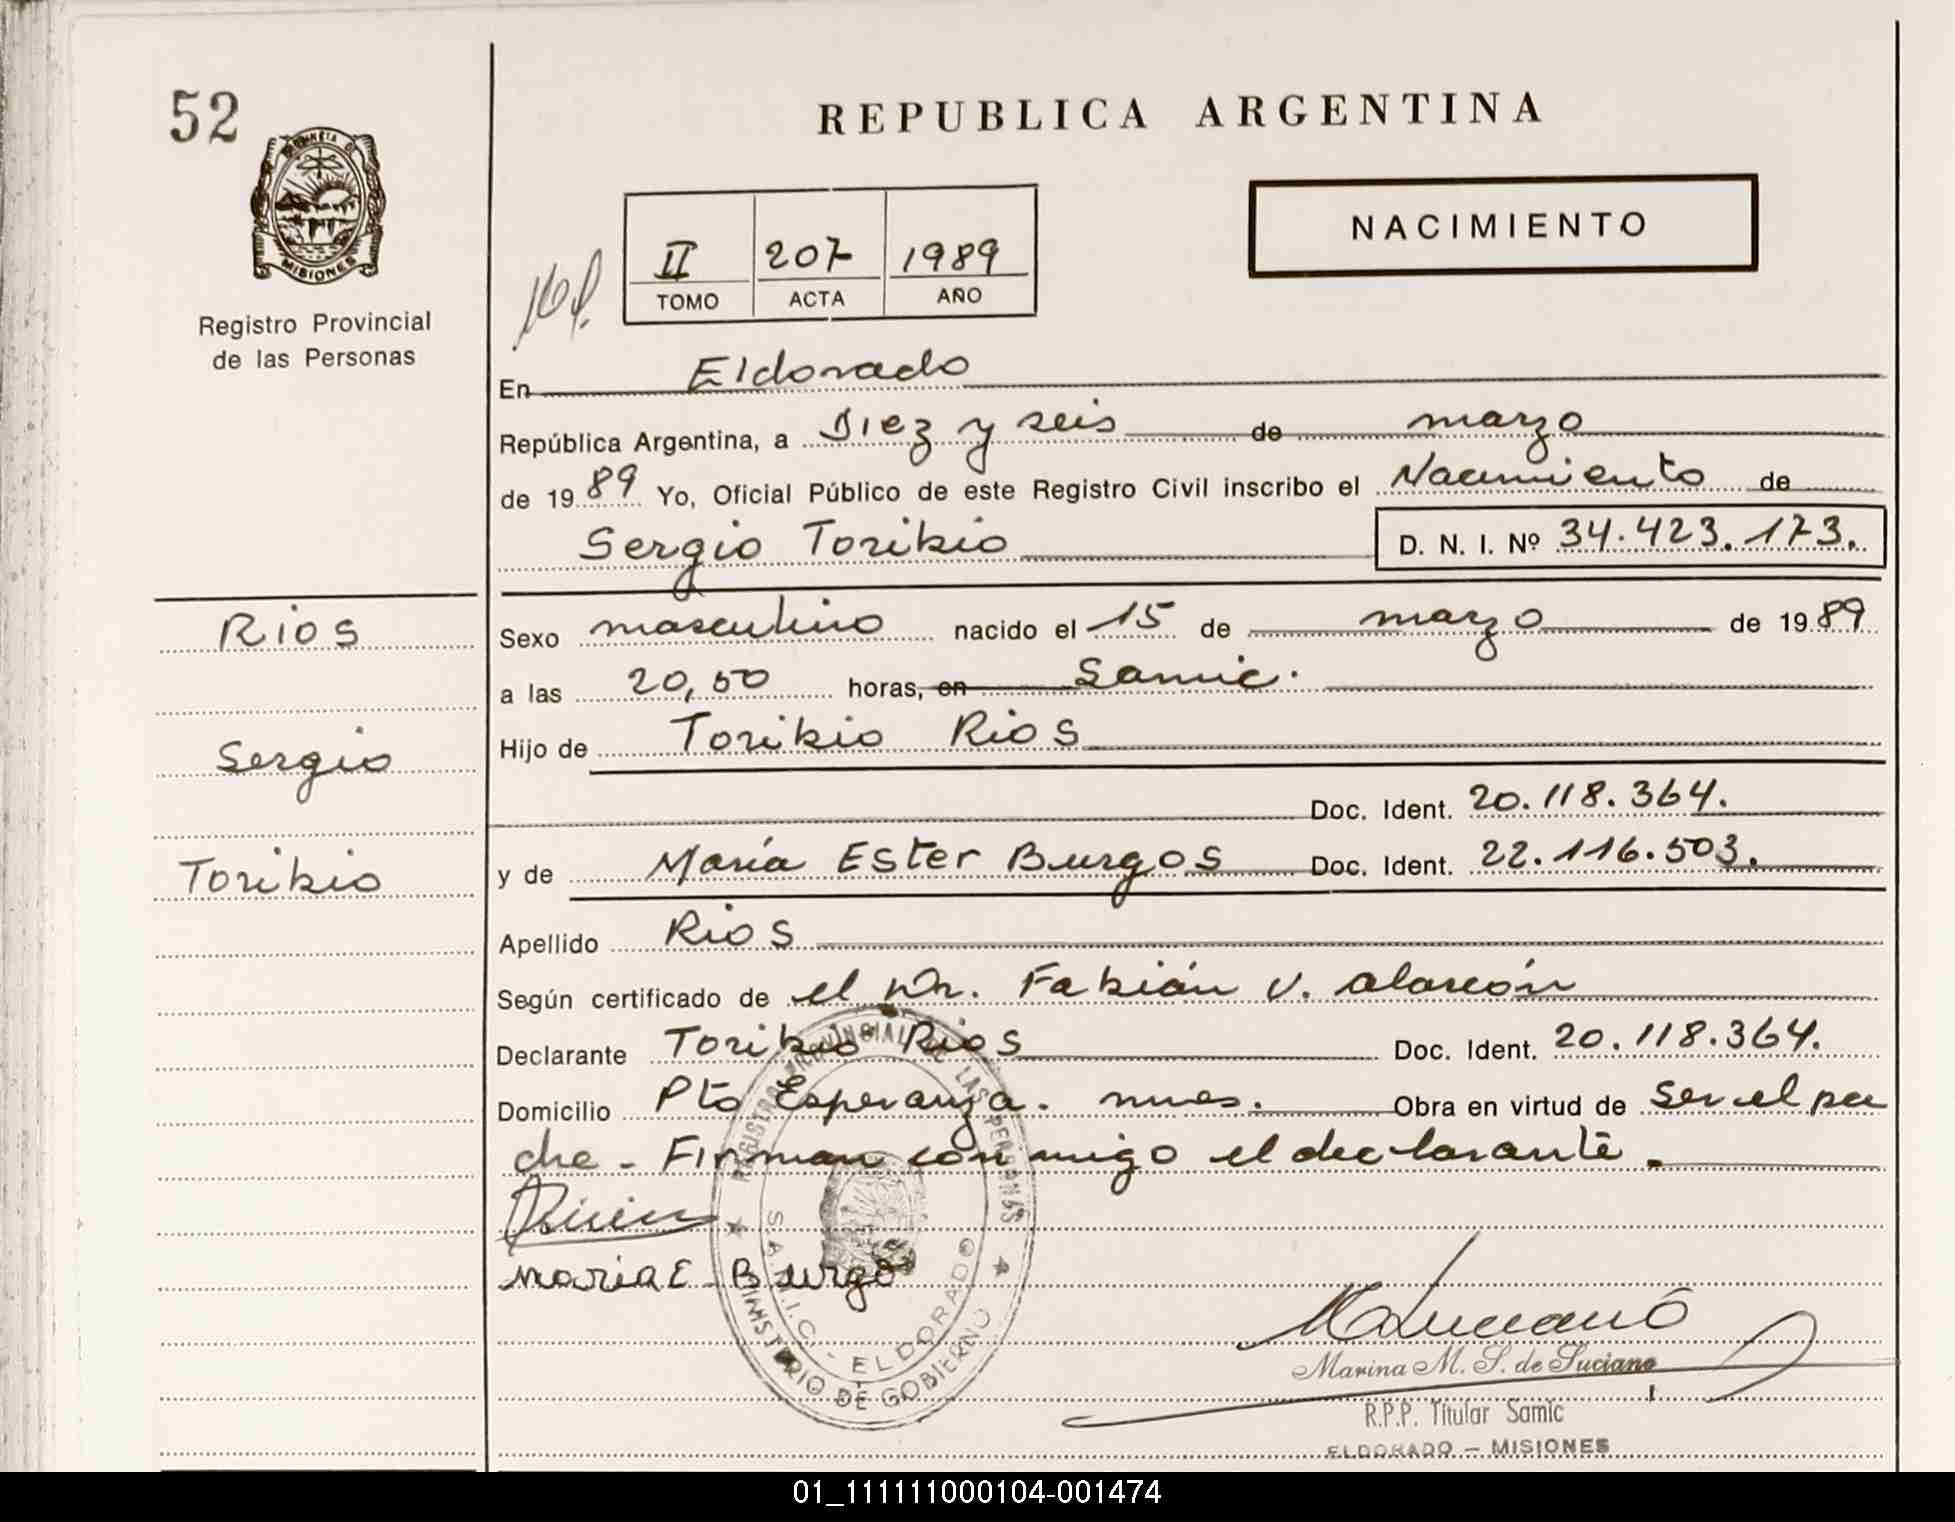 52
REPUBLICA ARGENTINA
MISIONES
Registro Provincial
de las Personas
NACIMIENTO
II 207 1989
TOMO ACTA AÑO
En Eldorado
República Argentina, a Diez y seis de marzo
de 1989 Yo, Oficial Público de este Registro Civil inscribo el Nacimiento de
Sergio Toribio D. N. I. Nº 34.423.173.
Rios
Sergio
Toribio
Sexo masculino nacido el 15 de marzo de 1989
a las 20,50 horas, en Samic.
Hijo de Toribio Rios
Doc. Ident. 20.118.364.
y de María Ester Burgos Doc. Ident. 22.116.503.
Apellido Rios
Según certificado de el Dr. Fabián V. Alarcón
Declarante Toribio Rios Doc. Ident. 20.118.364.
Domicilio Pto Esperanza. mnes. Obra en virtud de ser el pa
dre - Firman conmigo el declarante.
Maria E. Burgo
REGISTRO PROVINCIAL DE LAS PERSONAS
S.A.M.I.C. - ELDORADO
MINISTERIO DE GOBIERNO
Marina M. S. de Luciano
R.P.P. Titular Samic
ELDORADO — MISIONES
01_111111000104-001474